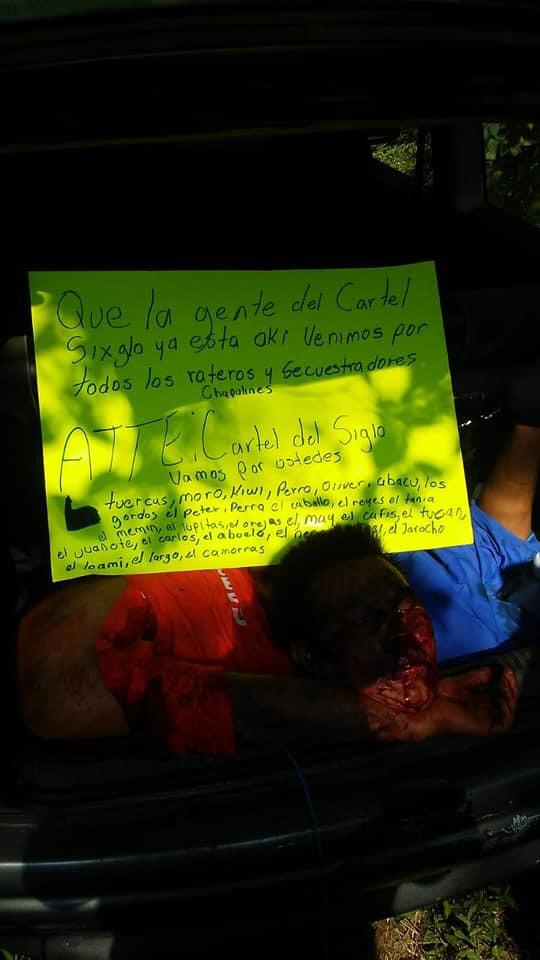 Que la gente del Cartel
Sixglo ya esta aki Venimos por
todos los rateros y Secuestradores
Chapulines
ATTE: Cartel del Siglo
Vamos por ustedes
tuercas, moro, Kiwi, Perro, Oliver, abacu, los
gordos el peter, Perra el caballo, el reyes el tania
el memin, el lupitas, el orejas el, may el cafis, el tucan,
el Juanote, el carlos, el abuelo, el el Jarocho
el loami, el largo, el camorras